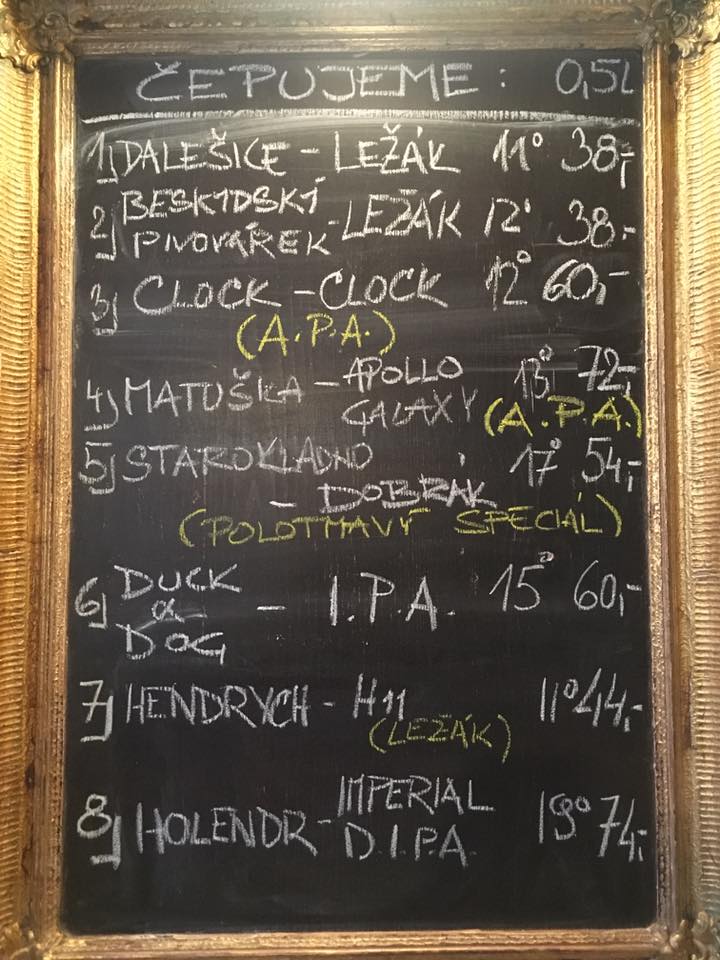 ČEPUJEME: 0,5L
1) DALEŠICE - LEŽÁK 11° 38,-
2) BESKYDSKÝ PIVOVÁREK - LEŽÁK 12° 38,-
3) CLOCK - CLOCK 12° 60,-
(A.P.A.)
4) MATUŠKA - APOLLO GALAXY 13° 72,-
(A.P.A.)
5) STAROKLADNO 17° 54,-
- DOBRÁK
(POLOTMAVÝ SPECIÁL)
6) DUCK & DOG - I.P.A. 15° 60,-
7) HENDRYCH - H11 11° 44,-
(LEŽÁK)
8) HOLENDR - IMPERIAL D.I.P.A. 19° 74,-